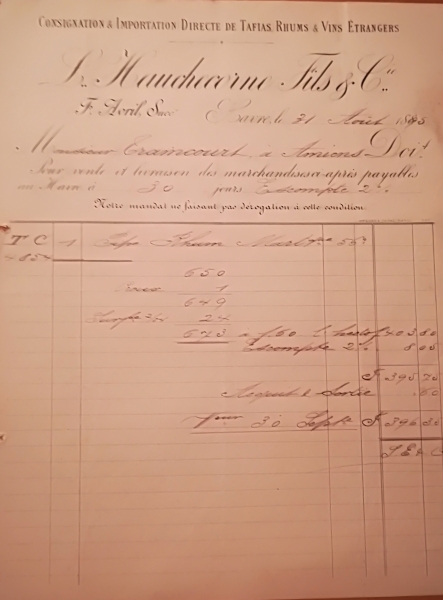 Consignation & Importation Directe de Tafias, Rhums & Vins Étrangers
L. Hauchecorne Fils & Cie
F. Avril, Succ
Havre, le 31 Août 1895
Monsieur Cramcourt, à Amiens Doit
Pour vente et livraison des marchandises ci-après payables
au Havre à 30 jours Escompte 2%
Notre mandat ne faisant pas dérogation à cette condition
T C 1 Rhum 55°
650
1
649
24
à f. 60 l'hecto 403 80
Escompte 2% 8 05
F 395 75
& Sortie 60
30 Septe F 396 35
S. E & O